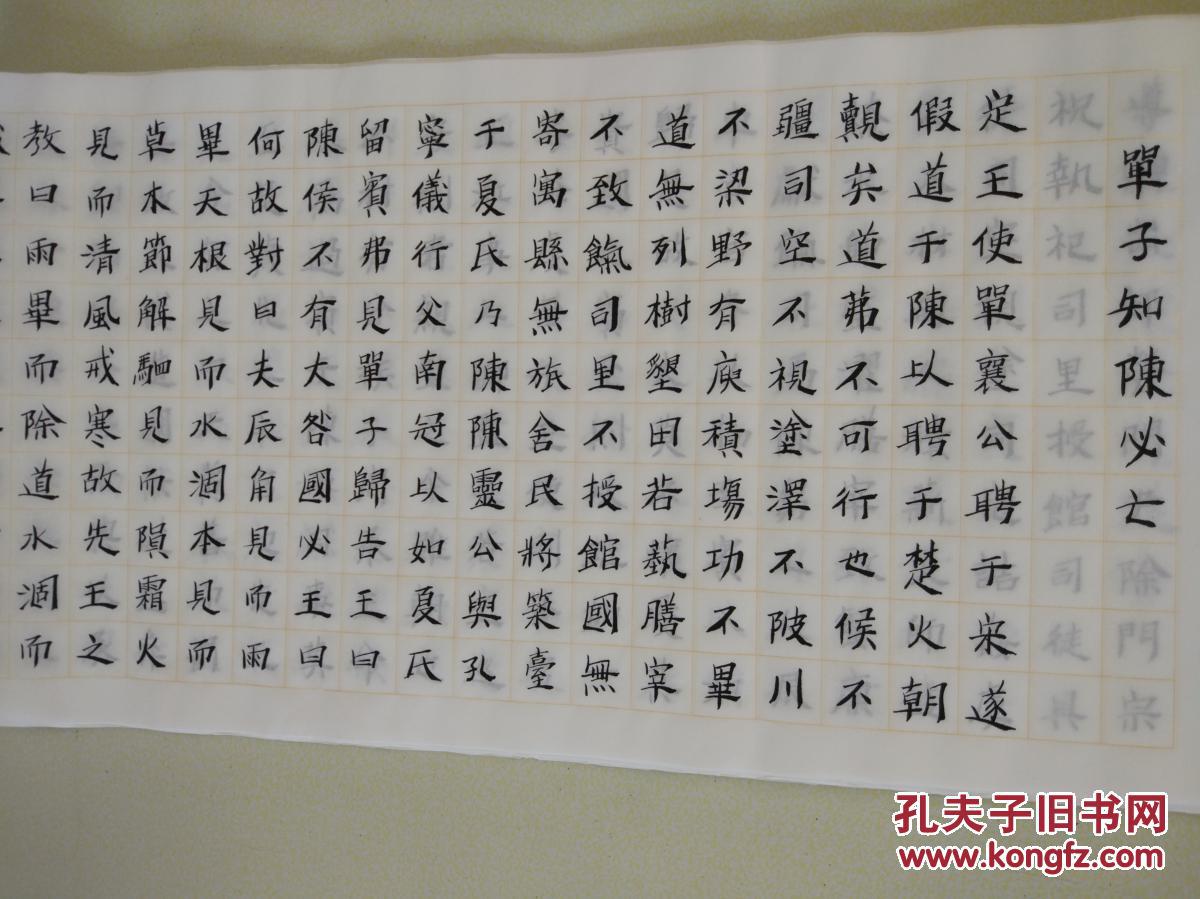 單子知陳必亡
定王使單襄公聘于宋遂
假道于陳以聘于楚火朝
覿矣道茀不可行也候不
疆司空不視塗澤不陂川
不梁野有庾積場功不畢
道無列樹墾田若蓺膳宰
不致餼司里不授館國無
寄寓縣無旅舍民將築臺
于夏氏乃陳陳靈公與孔
寧儀行父南冠以如夏氏
留賓弗見單子歸告王曰
陳侯不有大咎國必王曰
何故對曰夫辰角見而雨
畢天根見而水涸本見而
草木節解駟見而隕霜火
見而清風戒寒故先王之
教曰雨畢而除道水涸而
孔夫子旧书网
www.kongfz.com